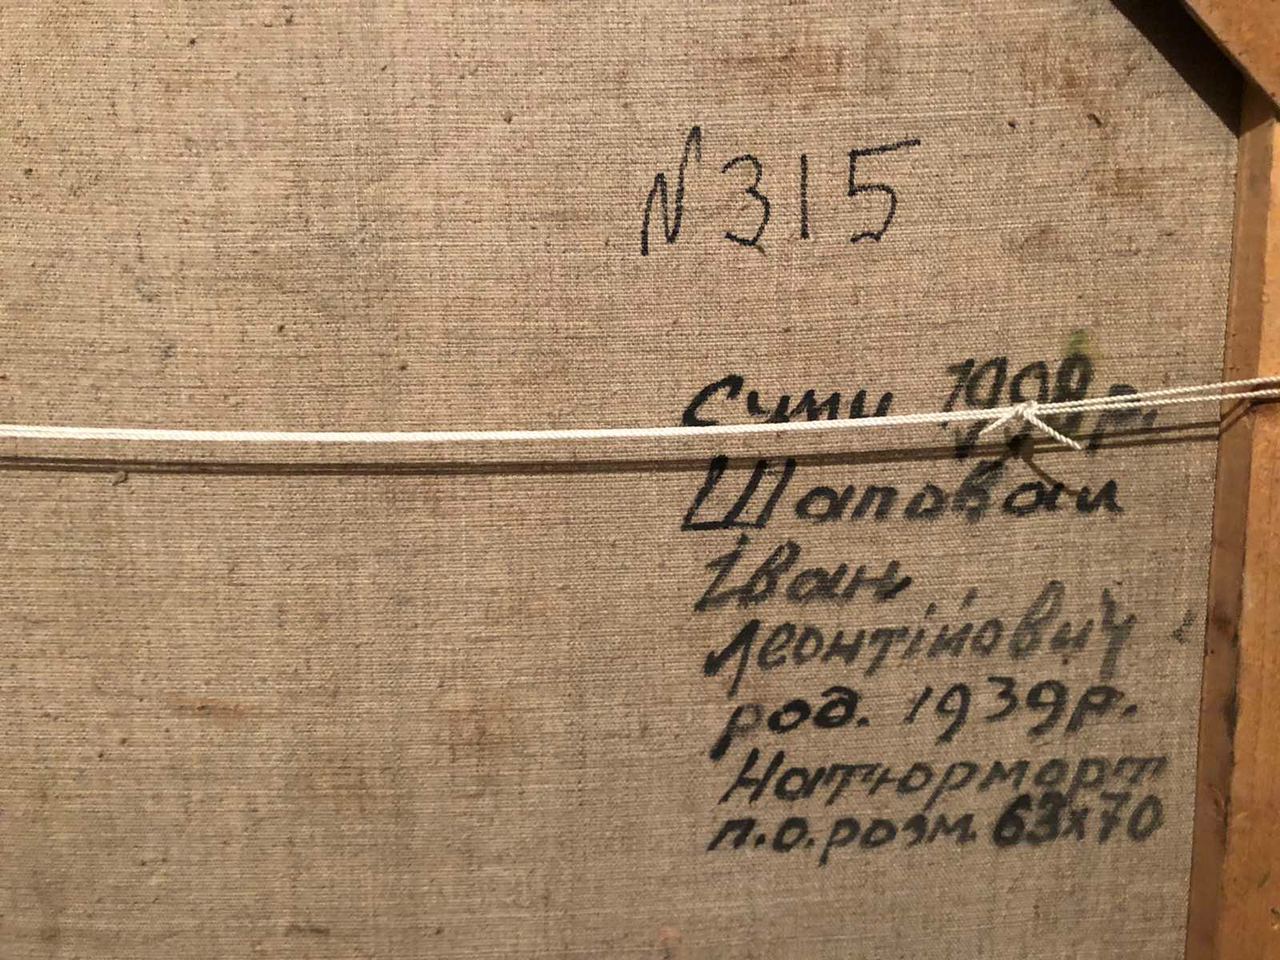 N 315
Суми 1998р.
Шаповал
Іван
Леонтійович
род. 1939р.
Натюрморт
п.о. розм. 63х70